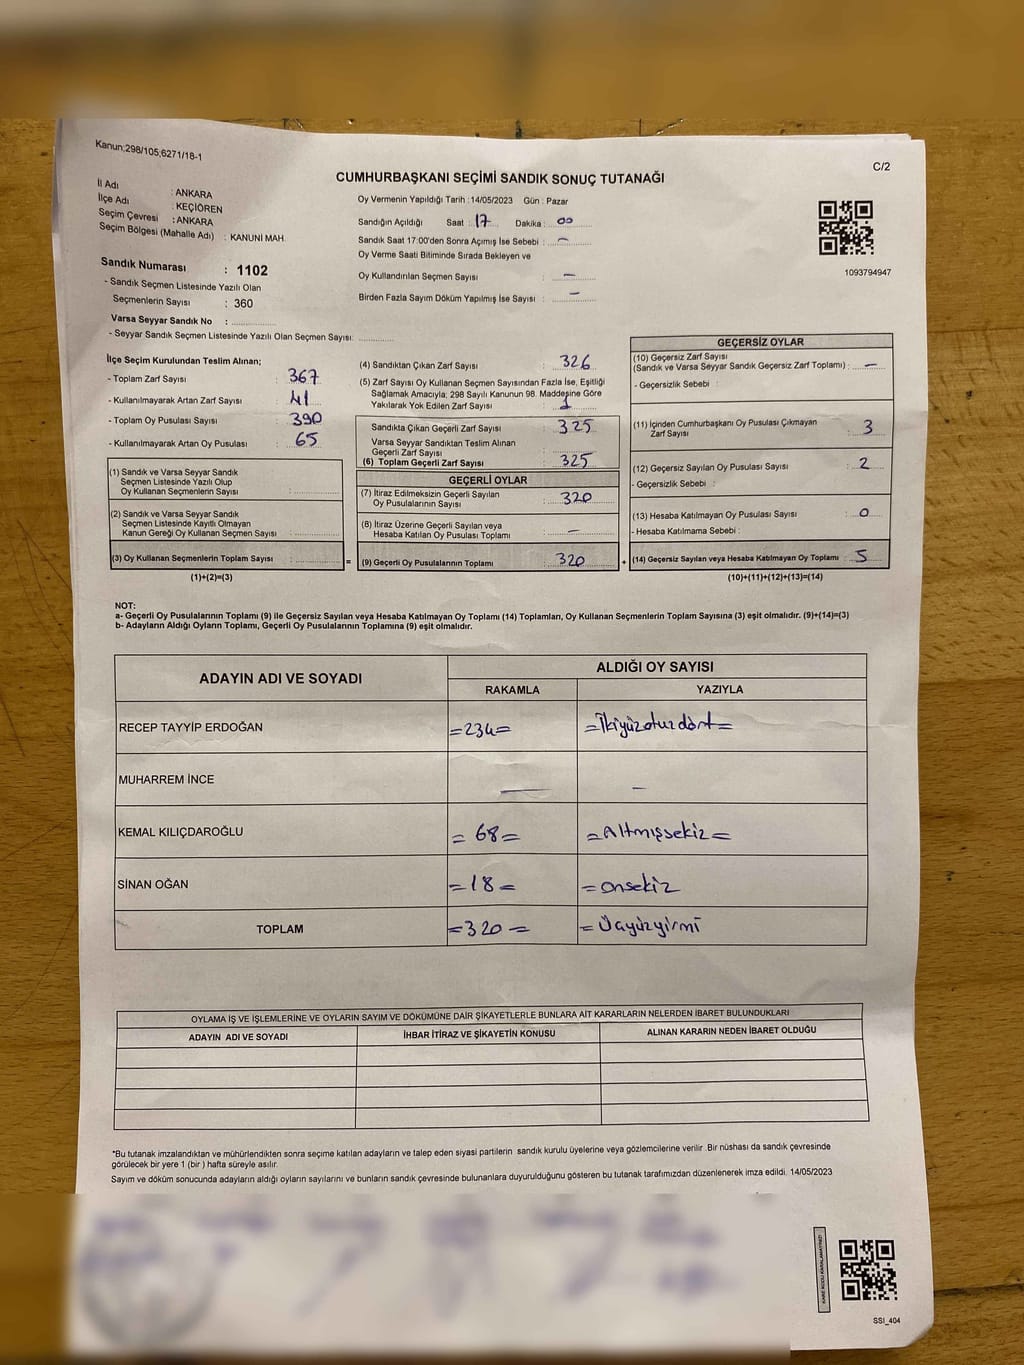 Kanun;298/105;6271/18-1
C/2
CUMHURBAŞKANI SEÇİMİ SANDIK SONUÇ TUTANAĞI
İl Adı : ANKARA
İlçe Adı : KEÇİÖREN
Seçim Çevresi : ANKARA
Seçim Bölgesi (Mahalle Adı) : KANUNİ MAH.
Sandık Numarası : 1102
- Sandık Seçmen Listesinde Yazılı Olan
Seçmenlerin Sayısı : 360
Varsa Seyyar Sandık No :
- Seyyar Sandık Seçmen Listesinde Yazılı Olan Seçmen Sayısı:
Oy Vermenin Yapıldığı Tarih :14/05/2023 Gün : Pazar
Sandığın Açıldığı Saat : 17 Dakika : 00
Sandık Saat 17:00'den Sonra Açımış İse Sebebi : –
Oy Verme Saati Bitiminde Sırada Bekleyen ve
Oy Kullandırılan Seçmen Sayısı : –
Birden Fazla Sayım Döküm Yapılmış İse Sayısı : –
1093794947
İlçe Seçim Kurulundan Teslim Alınan;
- Toplam Zarf Sayısı : 367
- Kullanılmayarak Artan Zarf Sayısı : 41
- Toplam Oy Pusulası Sayısı : 390
- Kullanılmayarak Artan Oy Pusulası : 65
(1) Sandık ve Varsa Seyyar Sandık
Seçmen Listesinde Yazılı Olup
Oy Kullanan Seçmenlerin Sayısı :
(2) Sandık ve Varsa Seyyar Sandık
Seçmen Listesinde Kayıtlı Olmayan
Kanun Gereği Oy Kullanan Seçmen Sayısı :
(3) Oy Kullanan Seçmenlerin Toplam Sayısı :
(1)+(2)=(3)
(4) Sandıktan Çıkan Zarf Sayısı : 326
(5) Zarf Sayısı Oy Kullanan Seçmen Sayısından Fazla İse, Eşitliği
Sağlamak Amacıyla; 298 Sayılı Kanunun 98. Maddesine Göre
Yakılarak Yok Edilen Zarf Sayısı : 1
Sandıkta Çıkan Geçerli Zarf Sayısı : 325
Varsa Seyyar Sandıktan Teslim Alınan
Geçerli Zarf Sayısı :
(6) Toplam Geçerli Zarf Sayısı : 325
GEÇERLİ OYLAR
(7) İtiraz Edilmeksizin Geçerli Sayılan
Oy Pusulalarının Sayısı : 320
(8) İtiraz Üzerine Geçerli Sayılan veya
Hesaba Katılan Oy Pusulası Toplamı : –
= (9) Geçerli Oy Pusulalarının Toplamı : 320 +
GEÇERSİZ OYLAR
(10) Geçersiz Zarf Sayısı
(Sandık ve Varsa Seyyar Sandık Geçersiz Zarf Toplamı) : –
- Geçersizlik Sebebi :
(11) İçinden Cumhurbaşkanı Oy Pusulası Çıkmayan
Zarf Sayısı : 3
(12) Geçersiz Sayılan Oy Pusulası Sayısı : 2
- Geçersizlik Sebebi :
(13) Hesaba Katılmayan Oy Pusulası Sayısı : 0
- Hesaba Katılmama Sebebi :
(14) Geçersiz Sayılan veya Hesaba Katılmayan Oy Toplamı : 5
(10)+(11)+(12)+(13)=(14)
NOT:
a- Geçerli Oy Pusulalarının Toplamı (9) ile Geçersiz Sayılan veya Hesaba Katılmayan Oy Toplamı (14) Toplamları, Oy Kullanan Seçmenlerin Toplam Sayısına (3) eşit olmalıdır. (9)+(14)=(3)
b- Adayların Aldığı Oyların Toplamı, Geçerli Oy Pusulalarının Toplamına (9) eşit olmalıdır.
ADAYIN ADI VE SOYADI
ALDIĞI OY SAYISI
RAKAMLA YAZIYLA
RECEP TAYYİP ERDOĞAN =234= =İkiyüzotuzdört=
MUHARREM İNCE – –
KEMAL KILIÇDAROĞLU = 68 = =Altmışsekiz=
SİNAN OĞAN =18= =onsekiz
TOPLAM =320= =Üçyüzyirmi
OYLAMA İŞ VE İŞLEMLERİNE VE OYLARIN SAYIM VE DÖKÜMÜNE DAİR ŞİKAYETLERLE BUNLARA AİT KARARLARIN NELERDEN İBARET BULUNDUKLARI
ADAYIN ADI VE SOYADI İHBAR İTİRAZ VE ŞİKAYETİN KONUSU ALINAN KARARIN NEDEN İBARET OLDUĞU
*Bu tutanak imzalandıktan ve mühürlendikten sonra seçime katılan adayların ve talep eden siyasi partilerin sandık kurulu üyelerine veya gözlemcilerine verilir. Bir nüshası da sandık çevresinde
görülecek bir yere 1 (bir ) hafta süreyle asılır.
Sayım ve döküm sonucunda adayların aldığı oyların sayılarını ve bunların sandık çevresinde bulunanlara duyurulduğunu gösteren bu tutanak tarafımızdan düzenlenerek imza edildi. 14/05/2023
KARE KODU KARALAMAYINIZ!
SSI_404